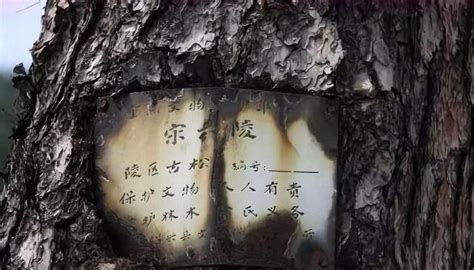 文物
宋六陵
陵区古松 编号:____
保护文物人人有责
护林木 民义务
兴县文